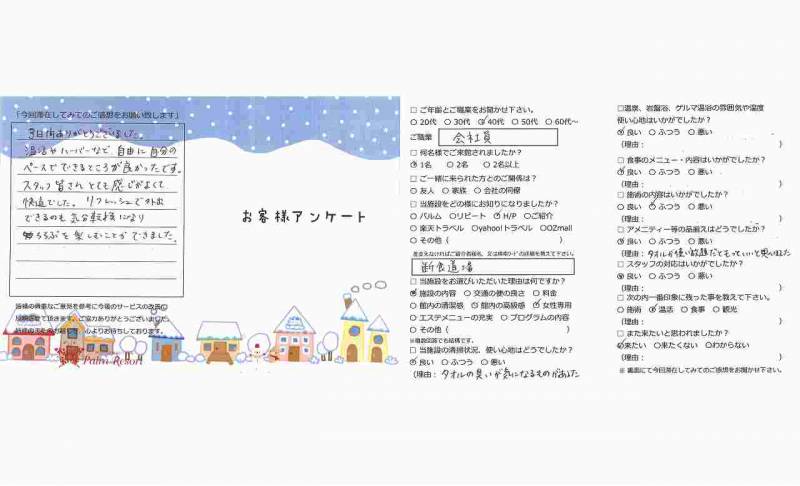 「今回滞在してみてのご感想をお願い致します」
3日間ありがとうございました。
温活やハーバーなど自由に自分の
ペースでできるところが良かったです。
スタッフ皆さんとても感じがよくて
快適でした。リフレッシュで外出
できるのも気分転換になり
ちちぶを楽しむことができました。
皆様の貴重なご意見を参考に今後のサービスの改善に
反映させて頂きます。ご協力ありがとうございました。
心よりお待ちしております。
Palm Resort
お客様アンケート
□ ご年齢とご職業をお聞かせ下さい。
○ 20代 ○ 30代 ○ 40代 ○ 50代 ○ 60代～
ご職業 会社員
□ 何名様でご来館されましたか？
○ 1名 ○ 2名 ○ 2名以上
□ ご一緒に来られた方とのご関係は？
○ 友人 ○ 家族 ○ 会社の同僚
□ 当施設をどの様にお知りになりましたか？
○ パルム ○ リピート ○ H/P ○ ご紹介
○ 楽天トラベル ○ yahoo!トラベル ○ OZmall
○ その他（ ）
差支えなければご紹介者様名、又は検索ワードの詳細を教えて下さい。
断食道場
□ 当施設をお選びいただいた理由は何ですか？
○ 施設の内容 ○ 交通の便の良さ ○ 料金
○ 館内の清潔感 ○ 館内の高級感 ○ 女性専用
○ エステメニューの充実 ○ プログラムの内容
○ その他（ ）
※複数回答でも結構です。
□ 当施設の清掃状況、使い心地はどうでしたか？
○ 良い ○ ふつう ○ 悪い
（理由：タオルの臭いが気になるものがあった
□ 温泉、岩盤浴、ゲルマ温浴の雰囲気や温度
使い心地はいかがでしたか？
○ 良い ○ ふつう ○ 悪い
（理由： ）
□ 食事のメニュー・内容はいかがでしたか？
○ 良い ○ ふつう ○ 悪い
（理由： ）
□ 施術の内容はいかがでしたか？
○ 良い ○ ふつう ○ 悪い
（理由： ）
□ アメニティー等の品揃えはどうでしたか？
○ 良い ○ ふつう ○ 悪い
（理由：タオルが使い放題だともっといいと思いました
□ スタッフの対応はいかがでしたか？
○ 良い ○ ふつう ○ 悪い
（理由： ）
□ 次の内一番印象に残った事を教えて下さい。
○ 施術 ○ 温活 ○ 食事 ○ 観光
（理由： ）
□ また来たいと思われましたか？
○ 来たい ○ 来たくない ○ わからない
（理由： ）
※ 裏面にて今回滞在してみてのご感想をお聞かせ下さい。